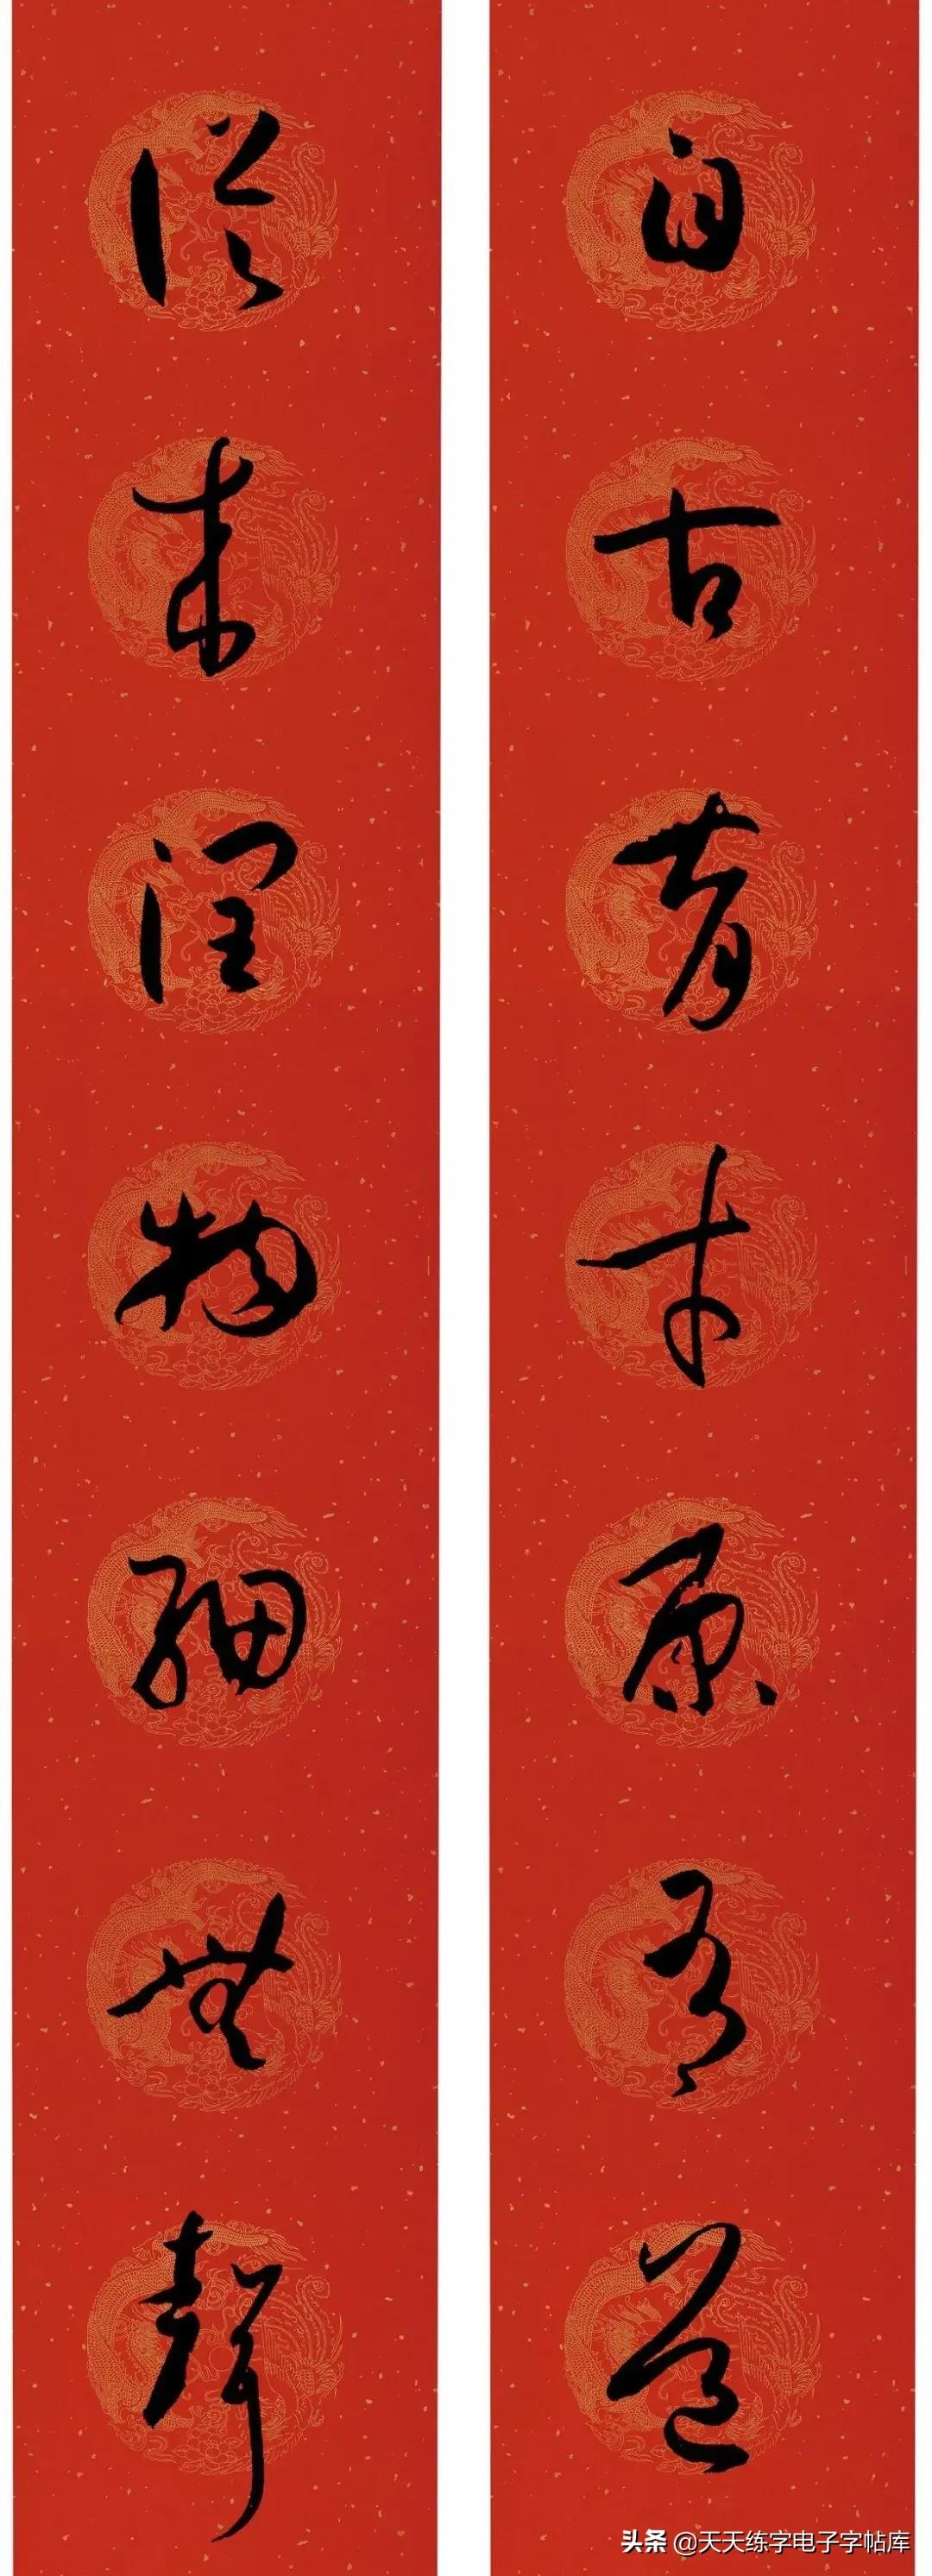 自古育才原有道
從来润物細無聲
头条 @天天练字电子字帖库